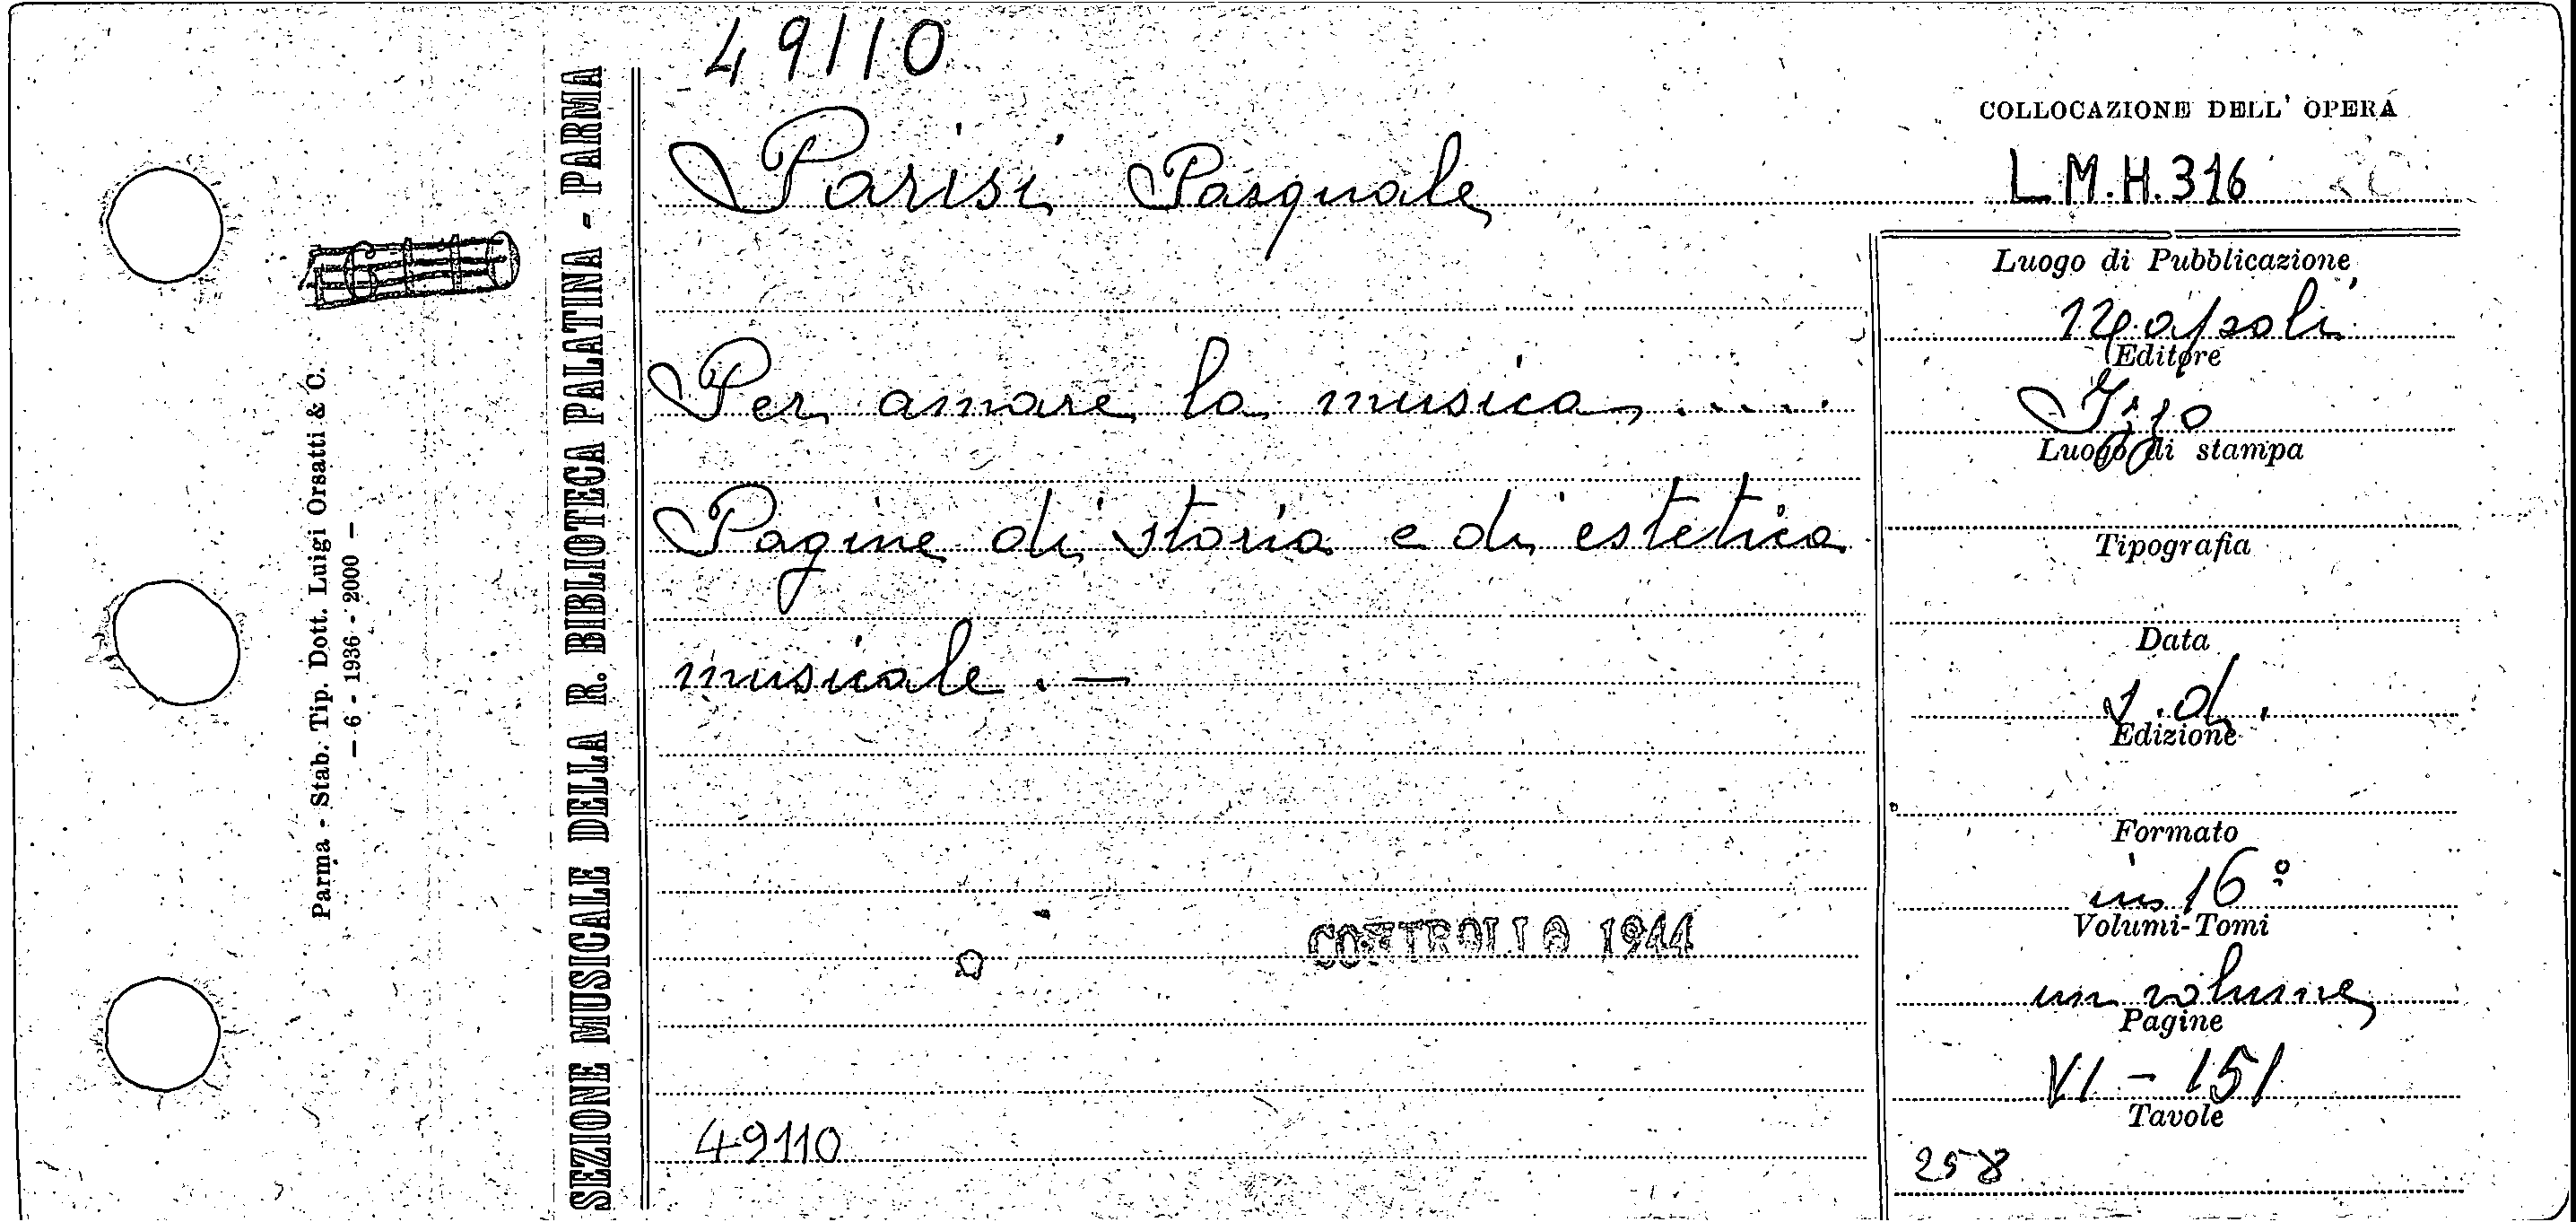 49110
COLLOCAZIONE DELL' OPERA
Parisi Pasquale
L.M.H.316
Per amare la musica .....
Pagine di storia e di estetica
musicale. —
CONTROLLO 1944
49110
Luogo di Pubblicazione
Napoli
Editore
Luogo di stampa
Tipografia
Data
s.d.
Edizione
Formato
in 16°
Volumi-Tomi
un volume
Pagine
VI - 151
Tavole
258
SEZIONE MUSICALE DELLA R. BIBLIOTECA PALATINA - PARMA
Parma - Stab. Tip. Dott. Luigi Orsatti & C.
— 6 - 1936 - 2000 —